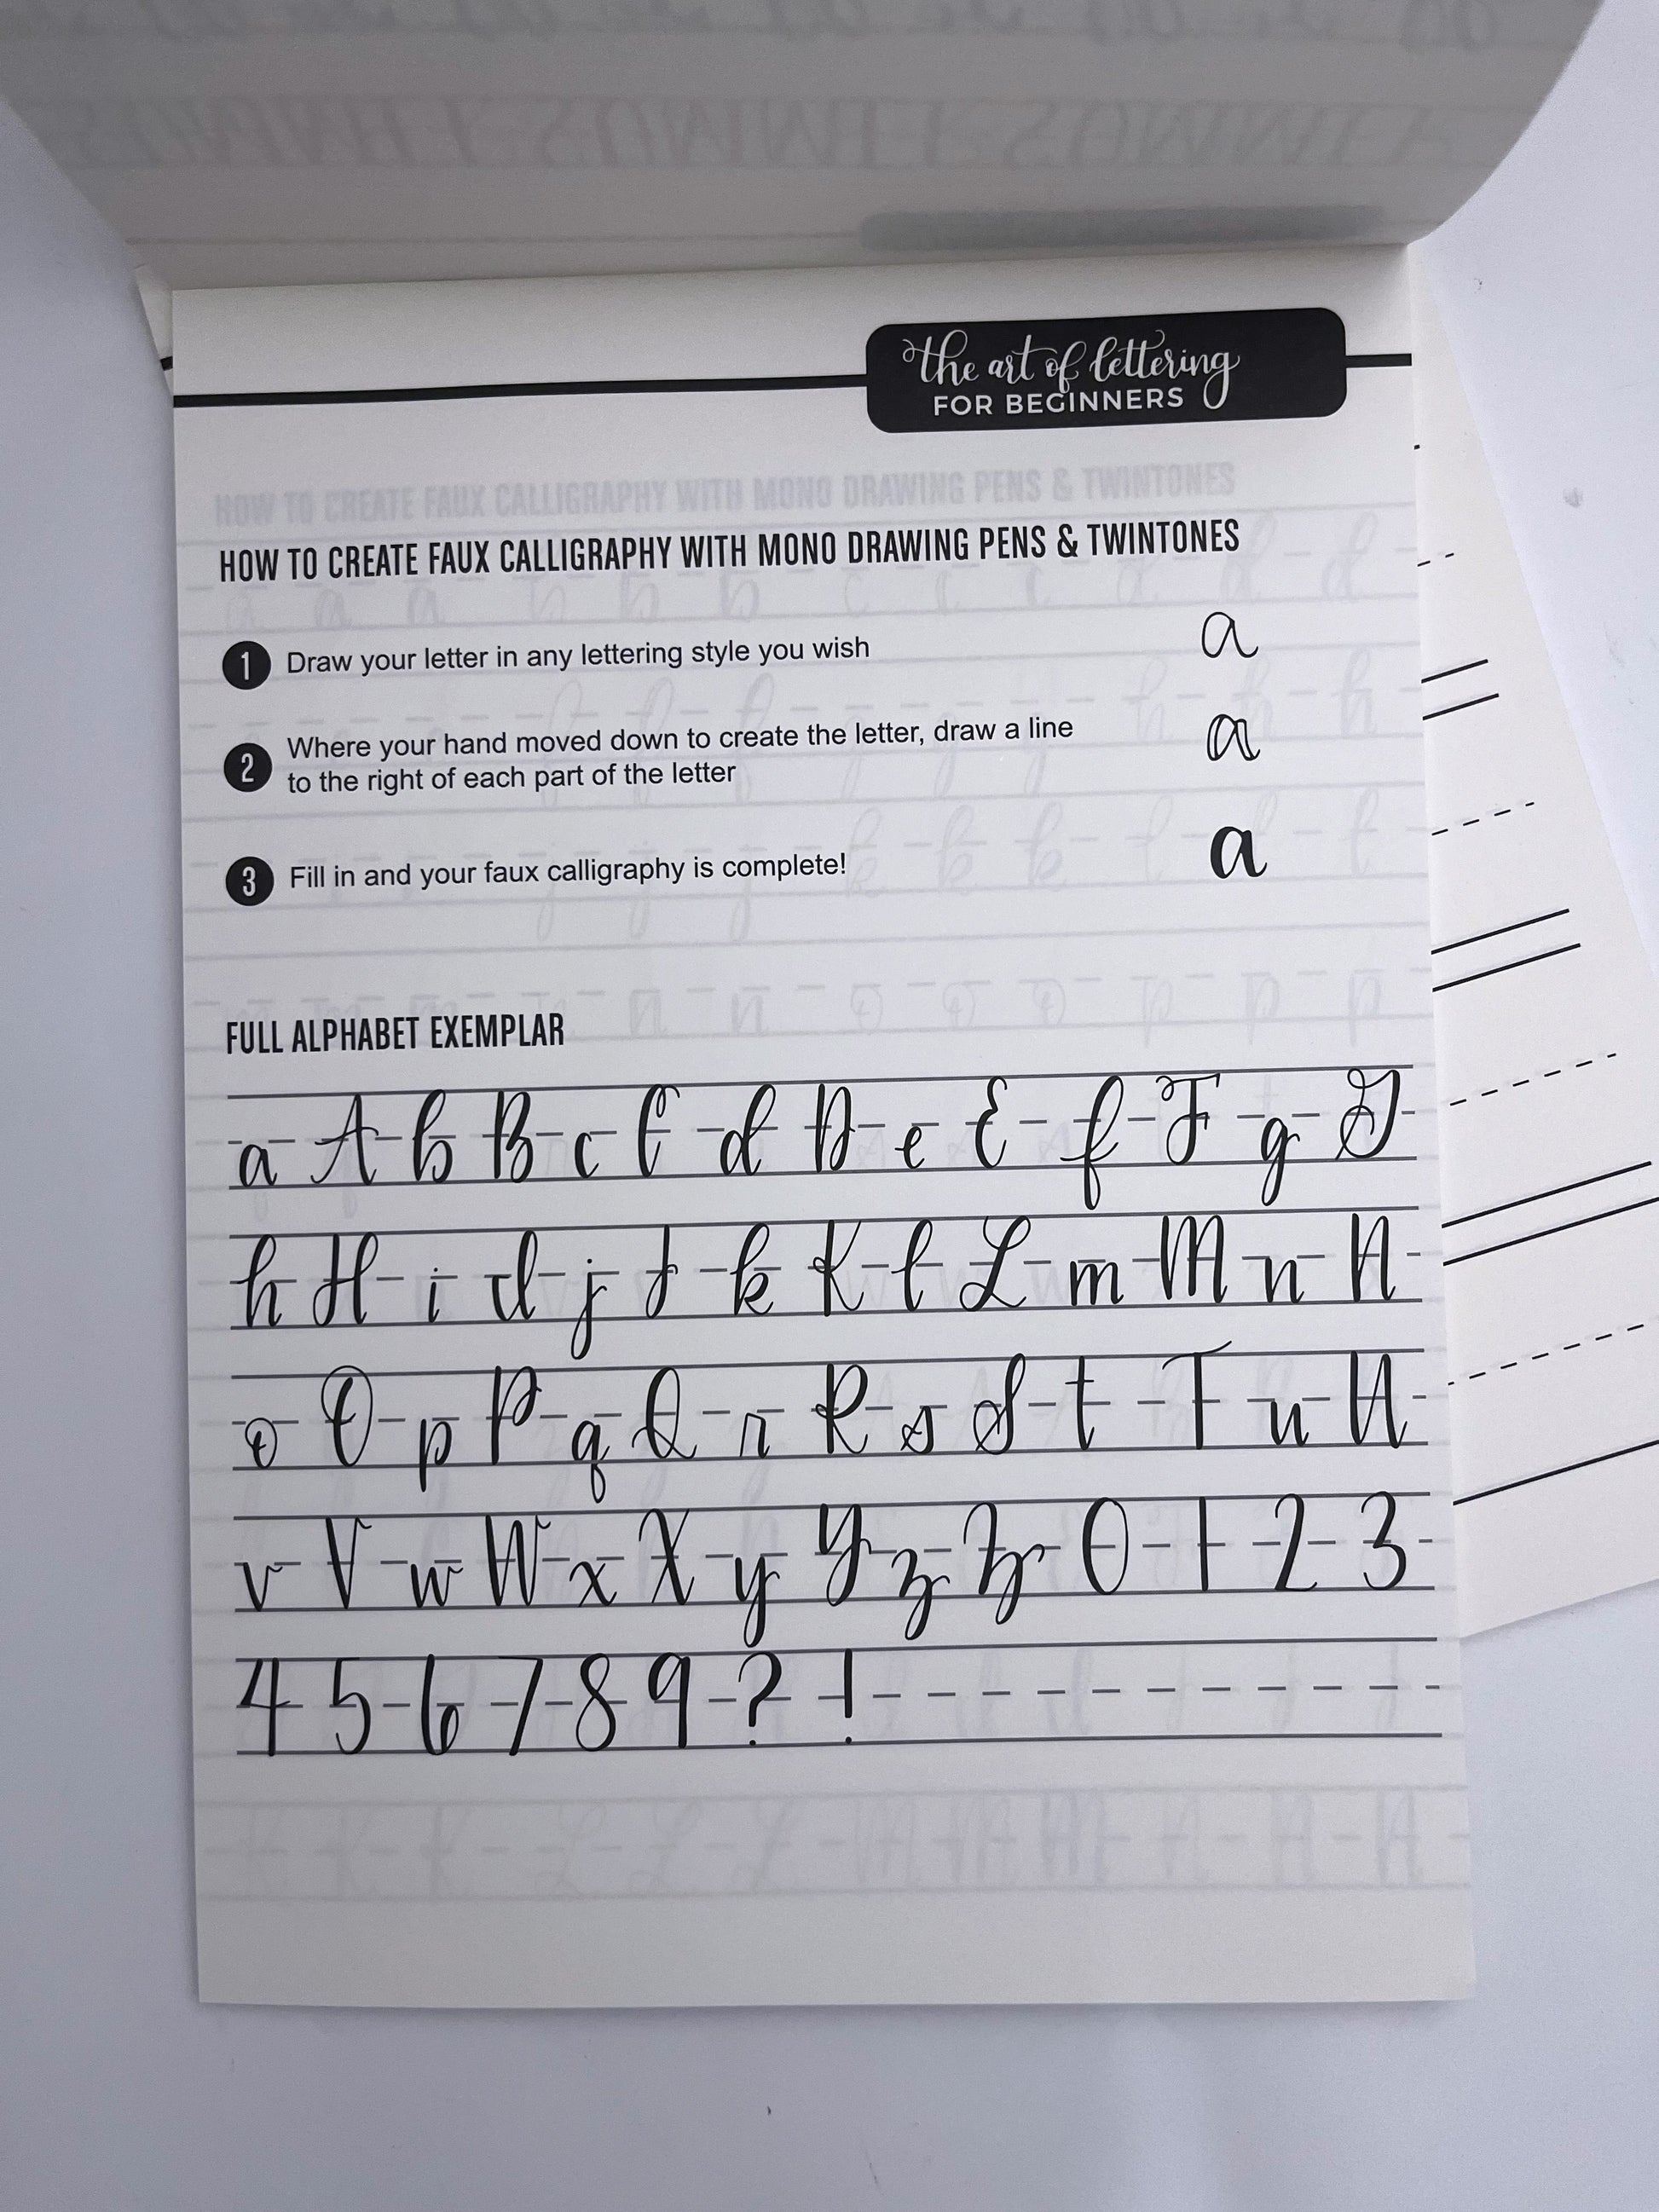 the art of lettering
FOR BEGINNERS
HOW TO CREATE FAUX CALLIGRAPHY WITH MONO DRAWING PENS & TWINTONES
1 Draw your letter in any lettering style you wish a
2 Where your hand moved down to create the letter, draw a line
to the right of each part of the letter a
3 Fill in and your faux calligraphy is complete! a
FULL ALPHABET EXEMPLAR
a A b B c C d D e E f F g G
h H i I j J k K l L m M n N
o O p P q Q r R s S t T u U
v V w W x X y Y z Z 0 1 2 3
4 5 6 7 8 9 ? !